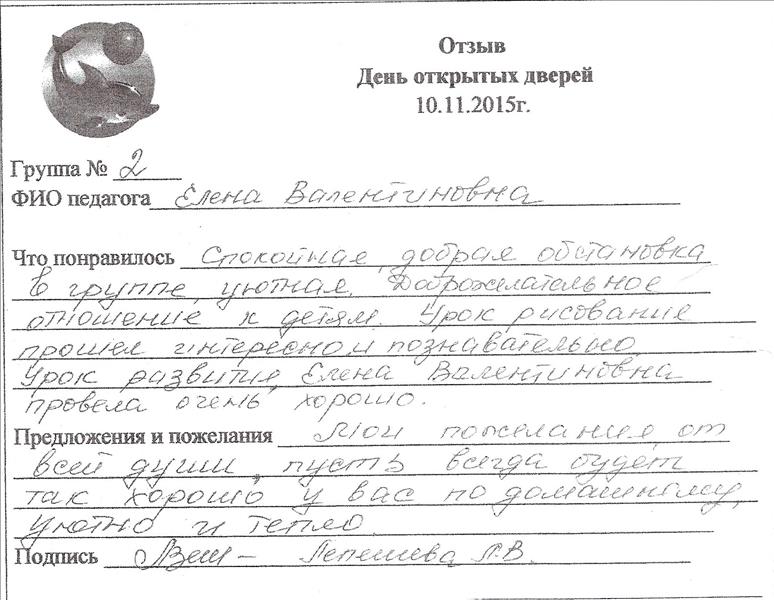 Отзыв
День открытых дверей
10.11.2015г.
Группа № 2
ФИО педагога Елена Валентиновна
Что понравилось Спокойная, добрая обстановка
в группе, уютная. Доброжелательное
отношение к детям. Урок рисования
прошел интересно и познавательно
Урок развития, Елена Валентиновна
провела очень хорошо.
Предложения и пожелания Мои пожелания от
всей души, пусть всегда будет
так хорошо, у вас по домашнему,
уютно и тепло.
Подпись Л.В.